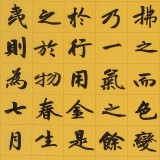 拂之而色變
乃一氣之餘
於行用金是
之於物春生
夷則為七月